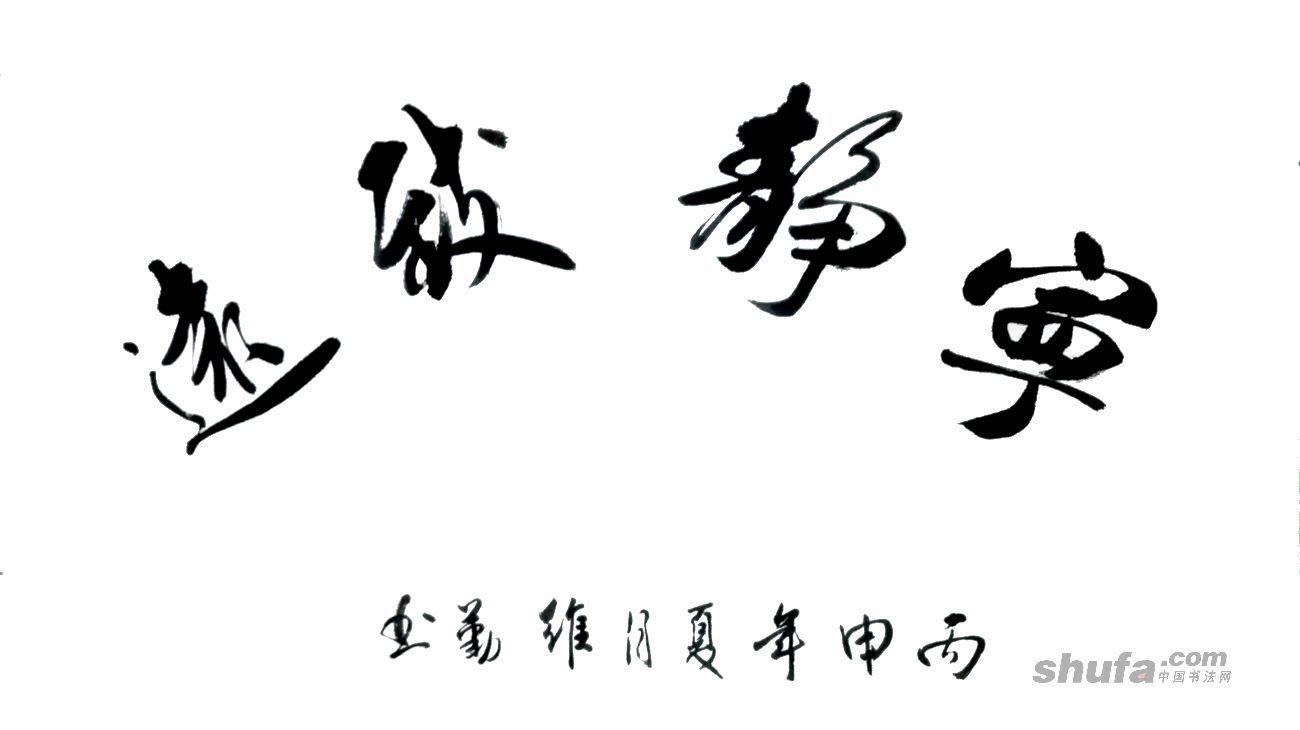 寧靜致遠
丙申年夏月維勤书
shufa.com
中国书法网